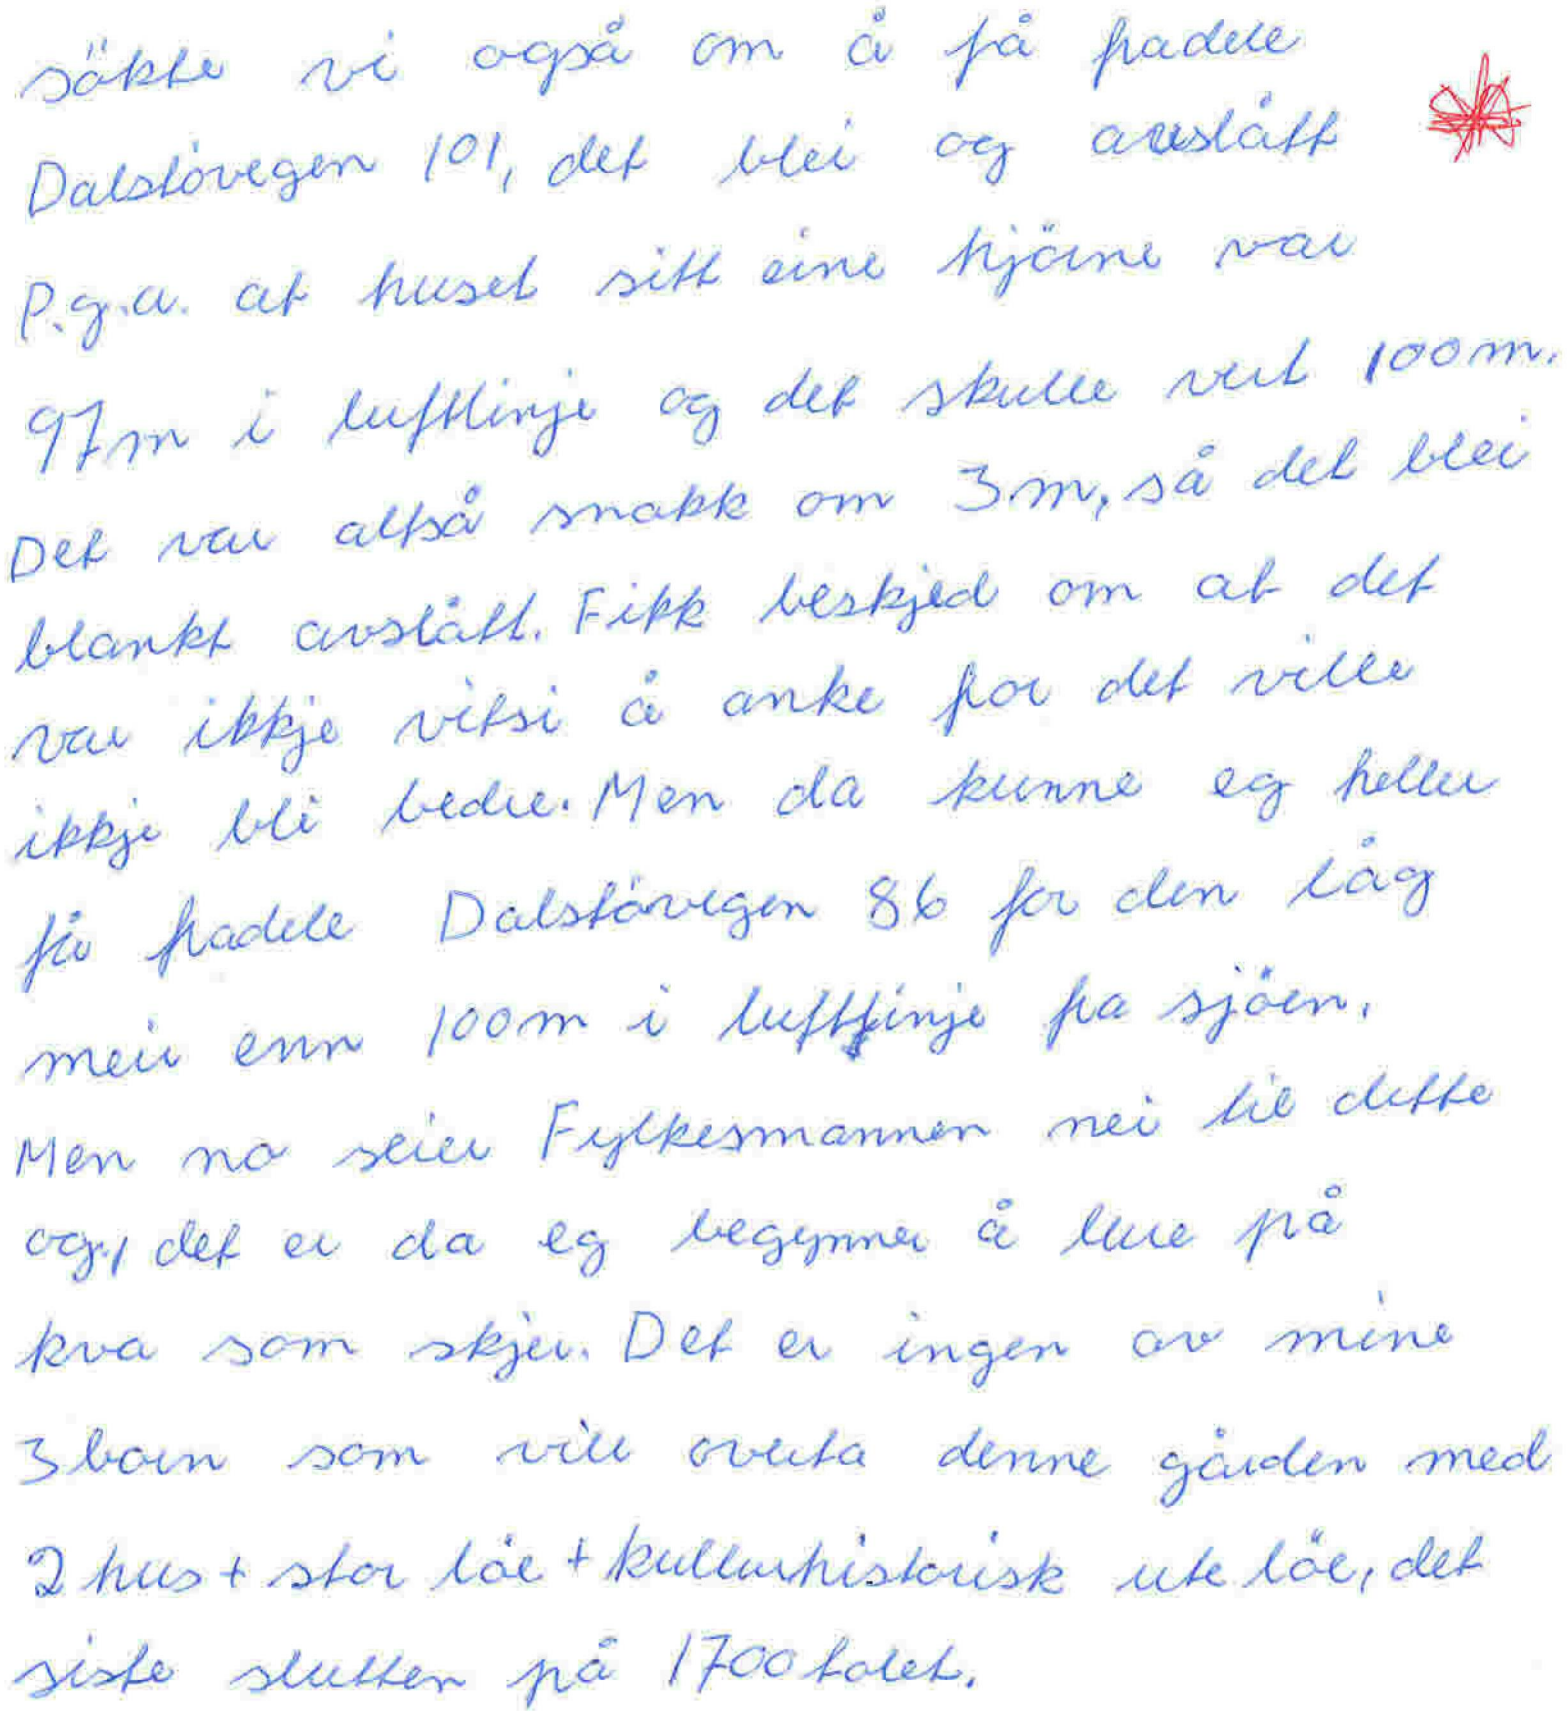 søkte vi også om å få fradele
Dalstøvegen 101, det blei og avslått
P.g.a. at huset sitt eine hjørne var
97m i luftlinje og det skulle vert 100m.
Det var altså snakk om 3m, så det blei
blankt avslått. Fikk beskjed om at det
var ikkje vitsi å anke for det ville
ikkje bli bedre. Men da kunne eg heller
få fradele Dalstøvegen 86 for den låg
meir enn 100m i luftlinje fra sjøen.
Men no seier Fylkesmannen nei til dette
og, det er da eg begynner å lure på
kva som skjer. Det er ingen av mine
3 born som vill overta denne gården med
2 hus + stor løe + kulturhistorisk ute løe, det
siste slutten på 1700 talet.